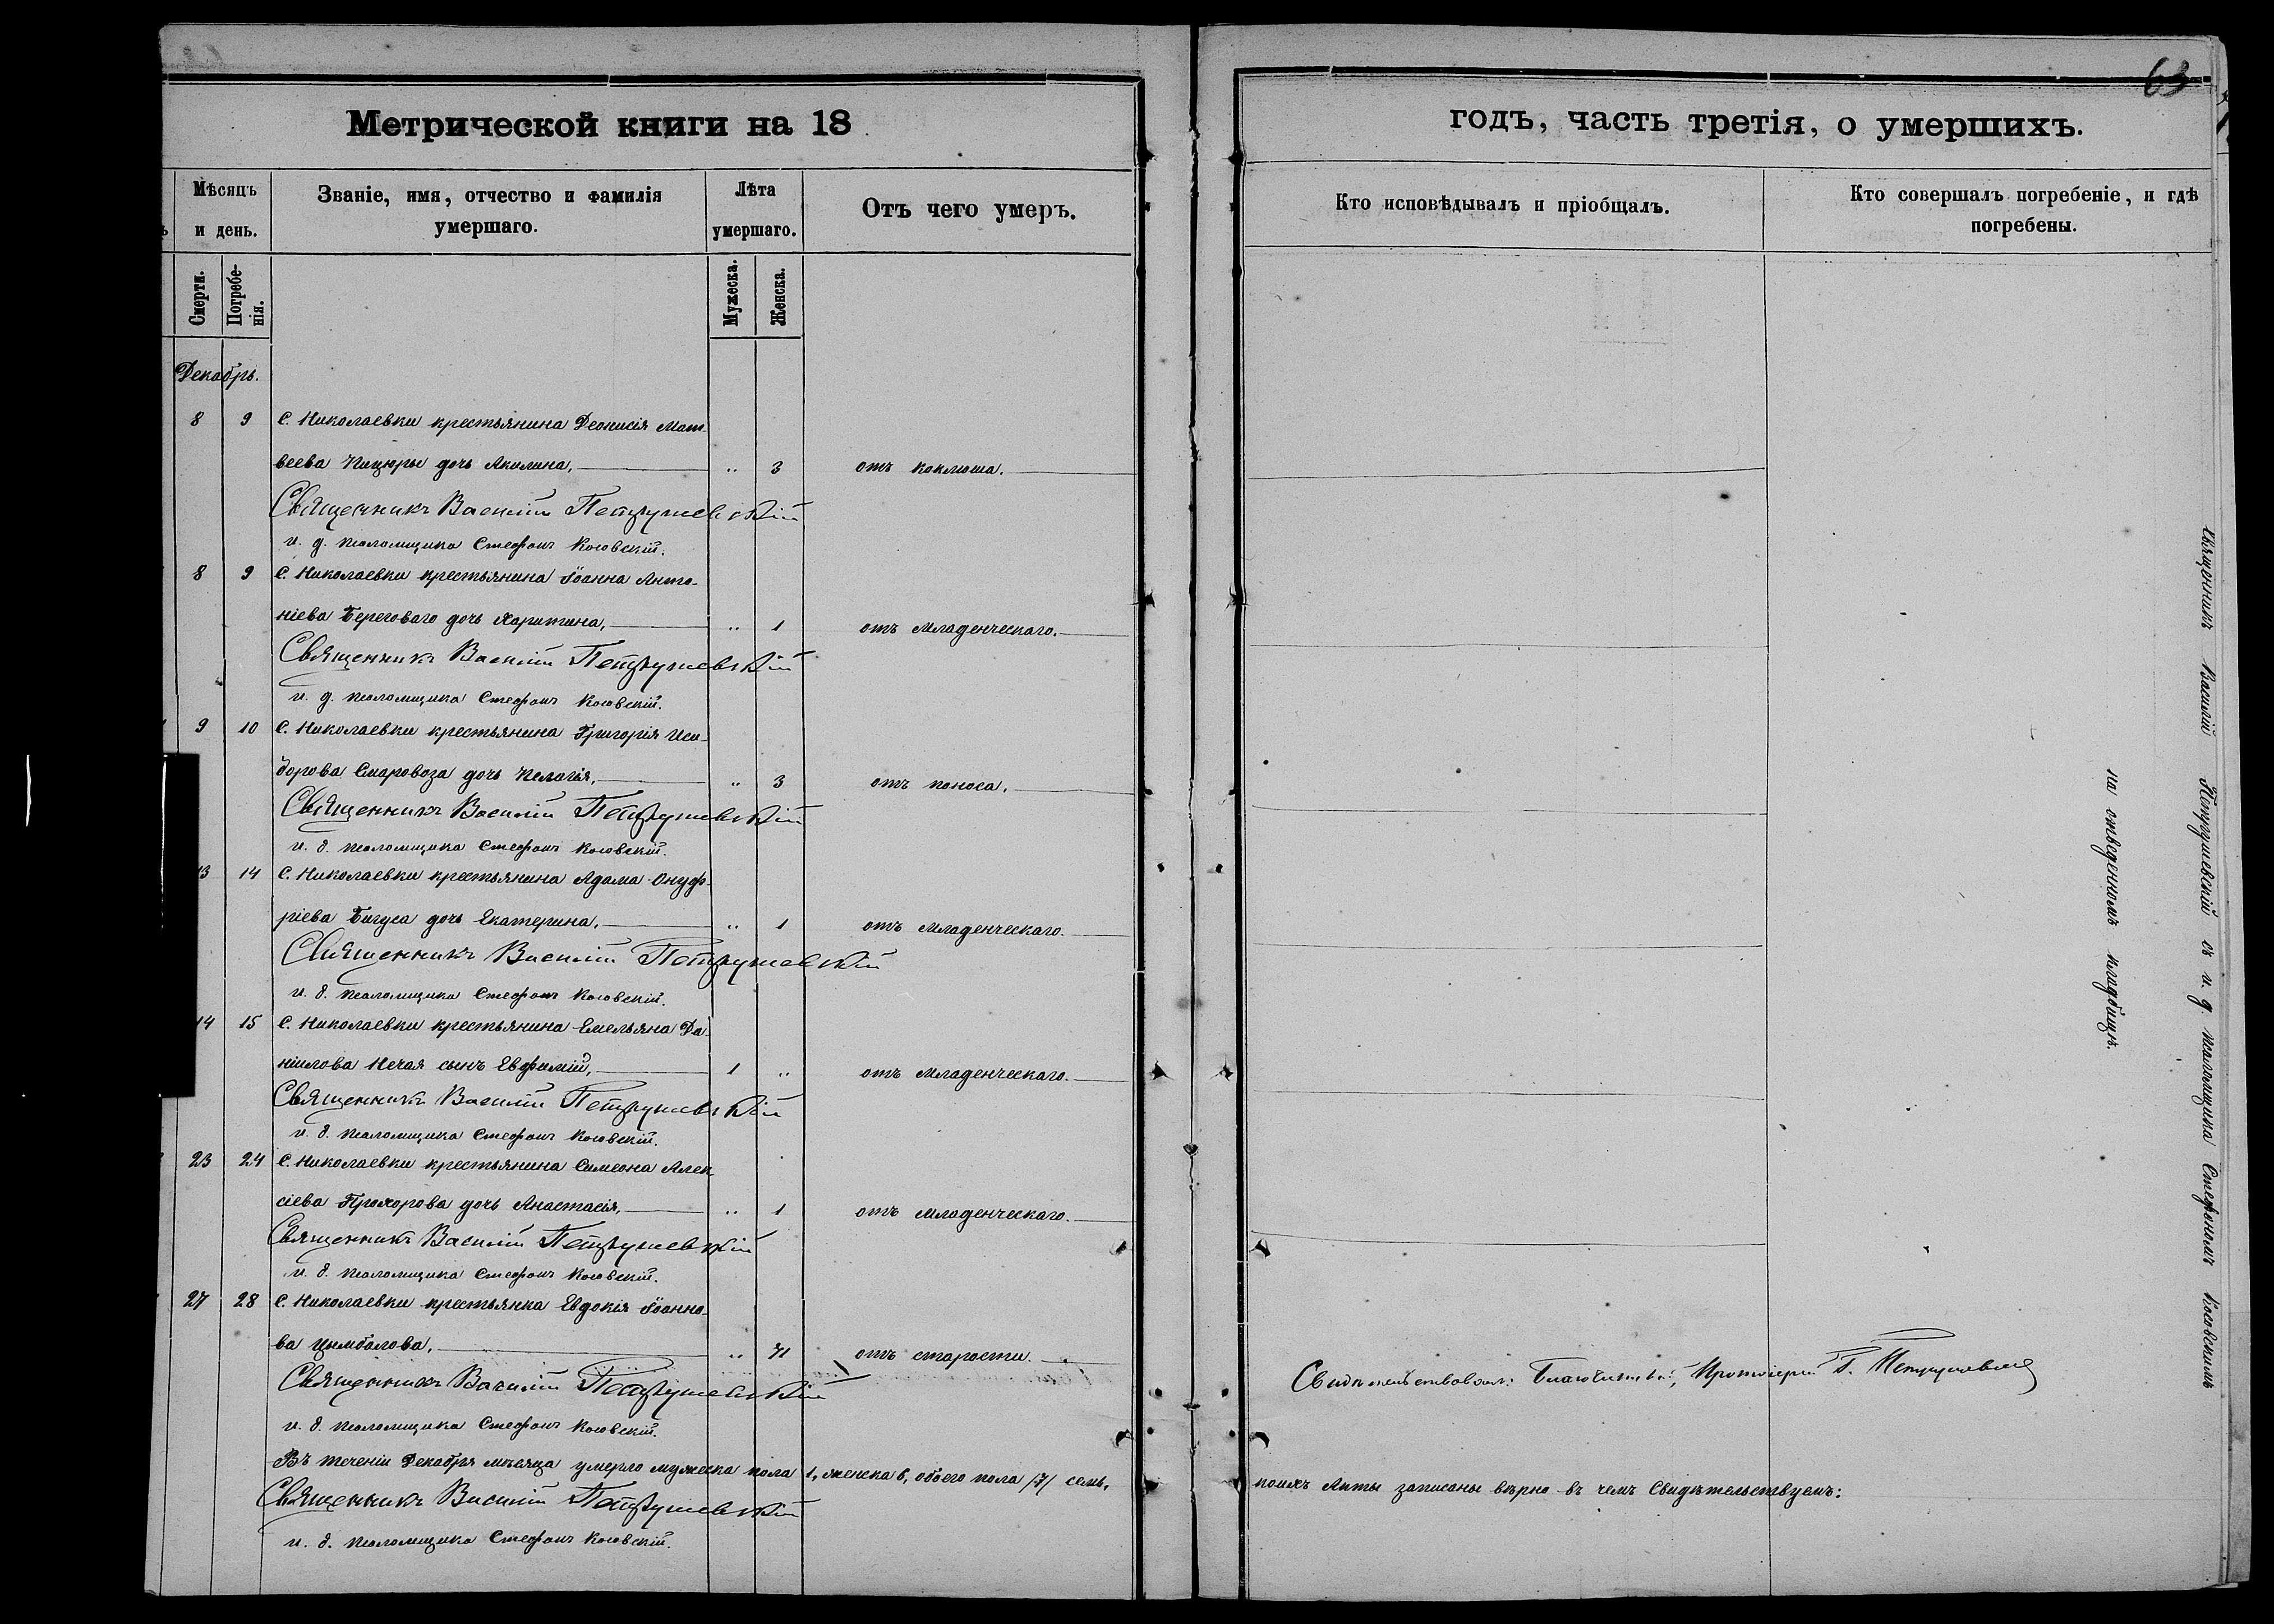 63
Метрической книги на 18
годъ, часть третія, о умершихъ.
Мѣсяцъ и день.
Званіе, имя, отчество и фамилія умершаго.
Лѣта умершаго.
Отъ чего умеръ.
Кто исповѣдывалъ и пріобщалъ.
Кто совершалъ погребеніе, и гдѣ погребены.
Смерти.
Погребе-
нія.
Мужеска.
Женска.
Декабрь.
8 9 С. Николаевки крестьянина Деонисія Мат-
веева дочь Акилина, „ 3 отъ коклюша.
Священникъ Василій Петрушевскій
и. д. псаломщика Стефанъ Косовскій.
8 9 С. Николаевки крестьянина Іоанна Анто-
ніева Береговаго дочь Харитина, „ 1 отъ младенческаго.
Священникъ Василій Петрушевскій
и. д. псаломщика Стефанъ Косовскій.
9 10 С. Николаевки крестьянина Григорія Иси-
дорова Смаровоза дочь Пелагія, „ 3 отъ поноса.
Священникъ Василій Петрушевскій
и. д. псаломщика Стефанъ Косовскій.
13 14 С. Николаевки крестьянина Адама Онуф-
ріева Бигуса дочь Екатерина, „ 1 отъ младенческаго.
Священникъ Василій Петрушевскій
и. д. псаломщика Стефанъ Косовскій.
14 15 С. Николаевки крестьянина Емельяна Да-
ніилова Нечая сынъ Евфимій, 1 „ отъ младенческаго.
Священникъ Василій Петрушевскій
и. д. псаломщика Стефанъ Косовскій.
23 24 С. Николаевки крестьянина Симеона Алек
сіева Прохорова дочь Анастасія, „ 1 отъ младенческаго.
Священникъ Василій Петрушевскій
и. д. псаломщика Стефанъ Косовскій.
27 28 С. Николаевки крестьянка Евдокія Іоанно-
ва Цымбалова, „ 71 отъ старости.
Священникъ Василій Петрушевскій
и. д. псаломщика Стефанъ Косовскій.
Въ теченіи Декабря мѣсяца умерло мужеска пола 1, женска 6, обоего пола /7/ семь,
Священникъ Василій Петрушевскій
и. д. псаломщика Стефанъ Косовскій.
Священникъ Василій Петрушевскій съ и. д. псаломщика Стефаномъ Косовскимъ
на отведенномъ кладбищѣ.
Свидѣтельствовалъ: Благочинный, Протоіерей Петрушевскій
коихъ Акты записаны вѣрно въ чемъ Свидѣтельствуемъ: